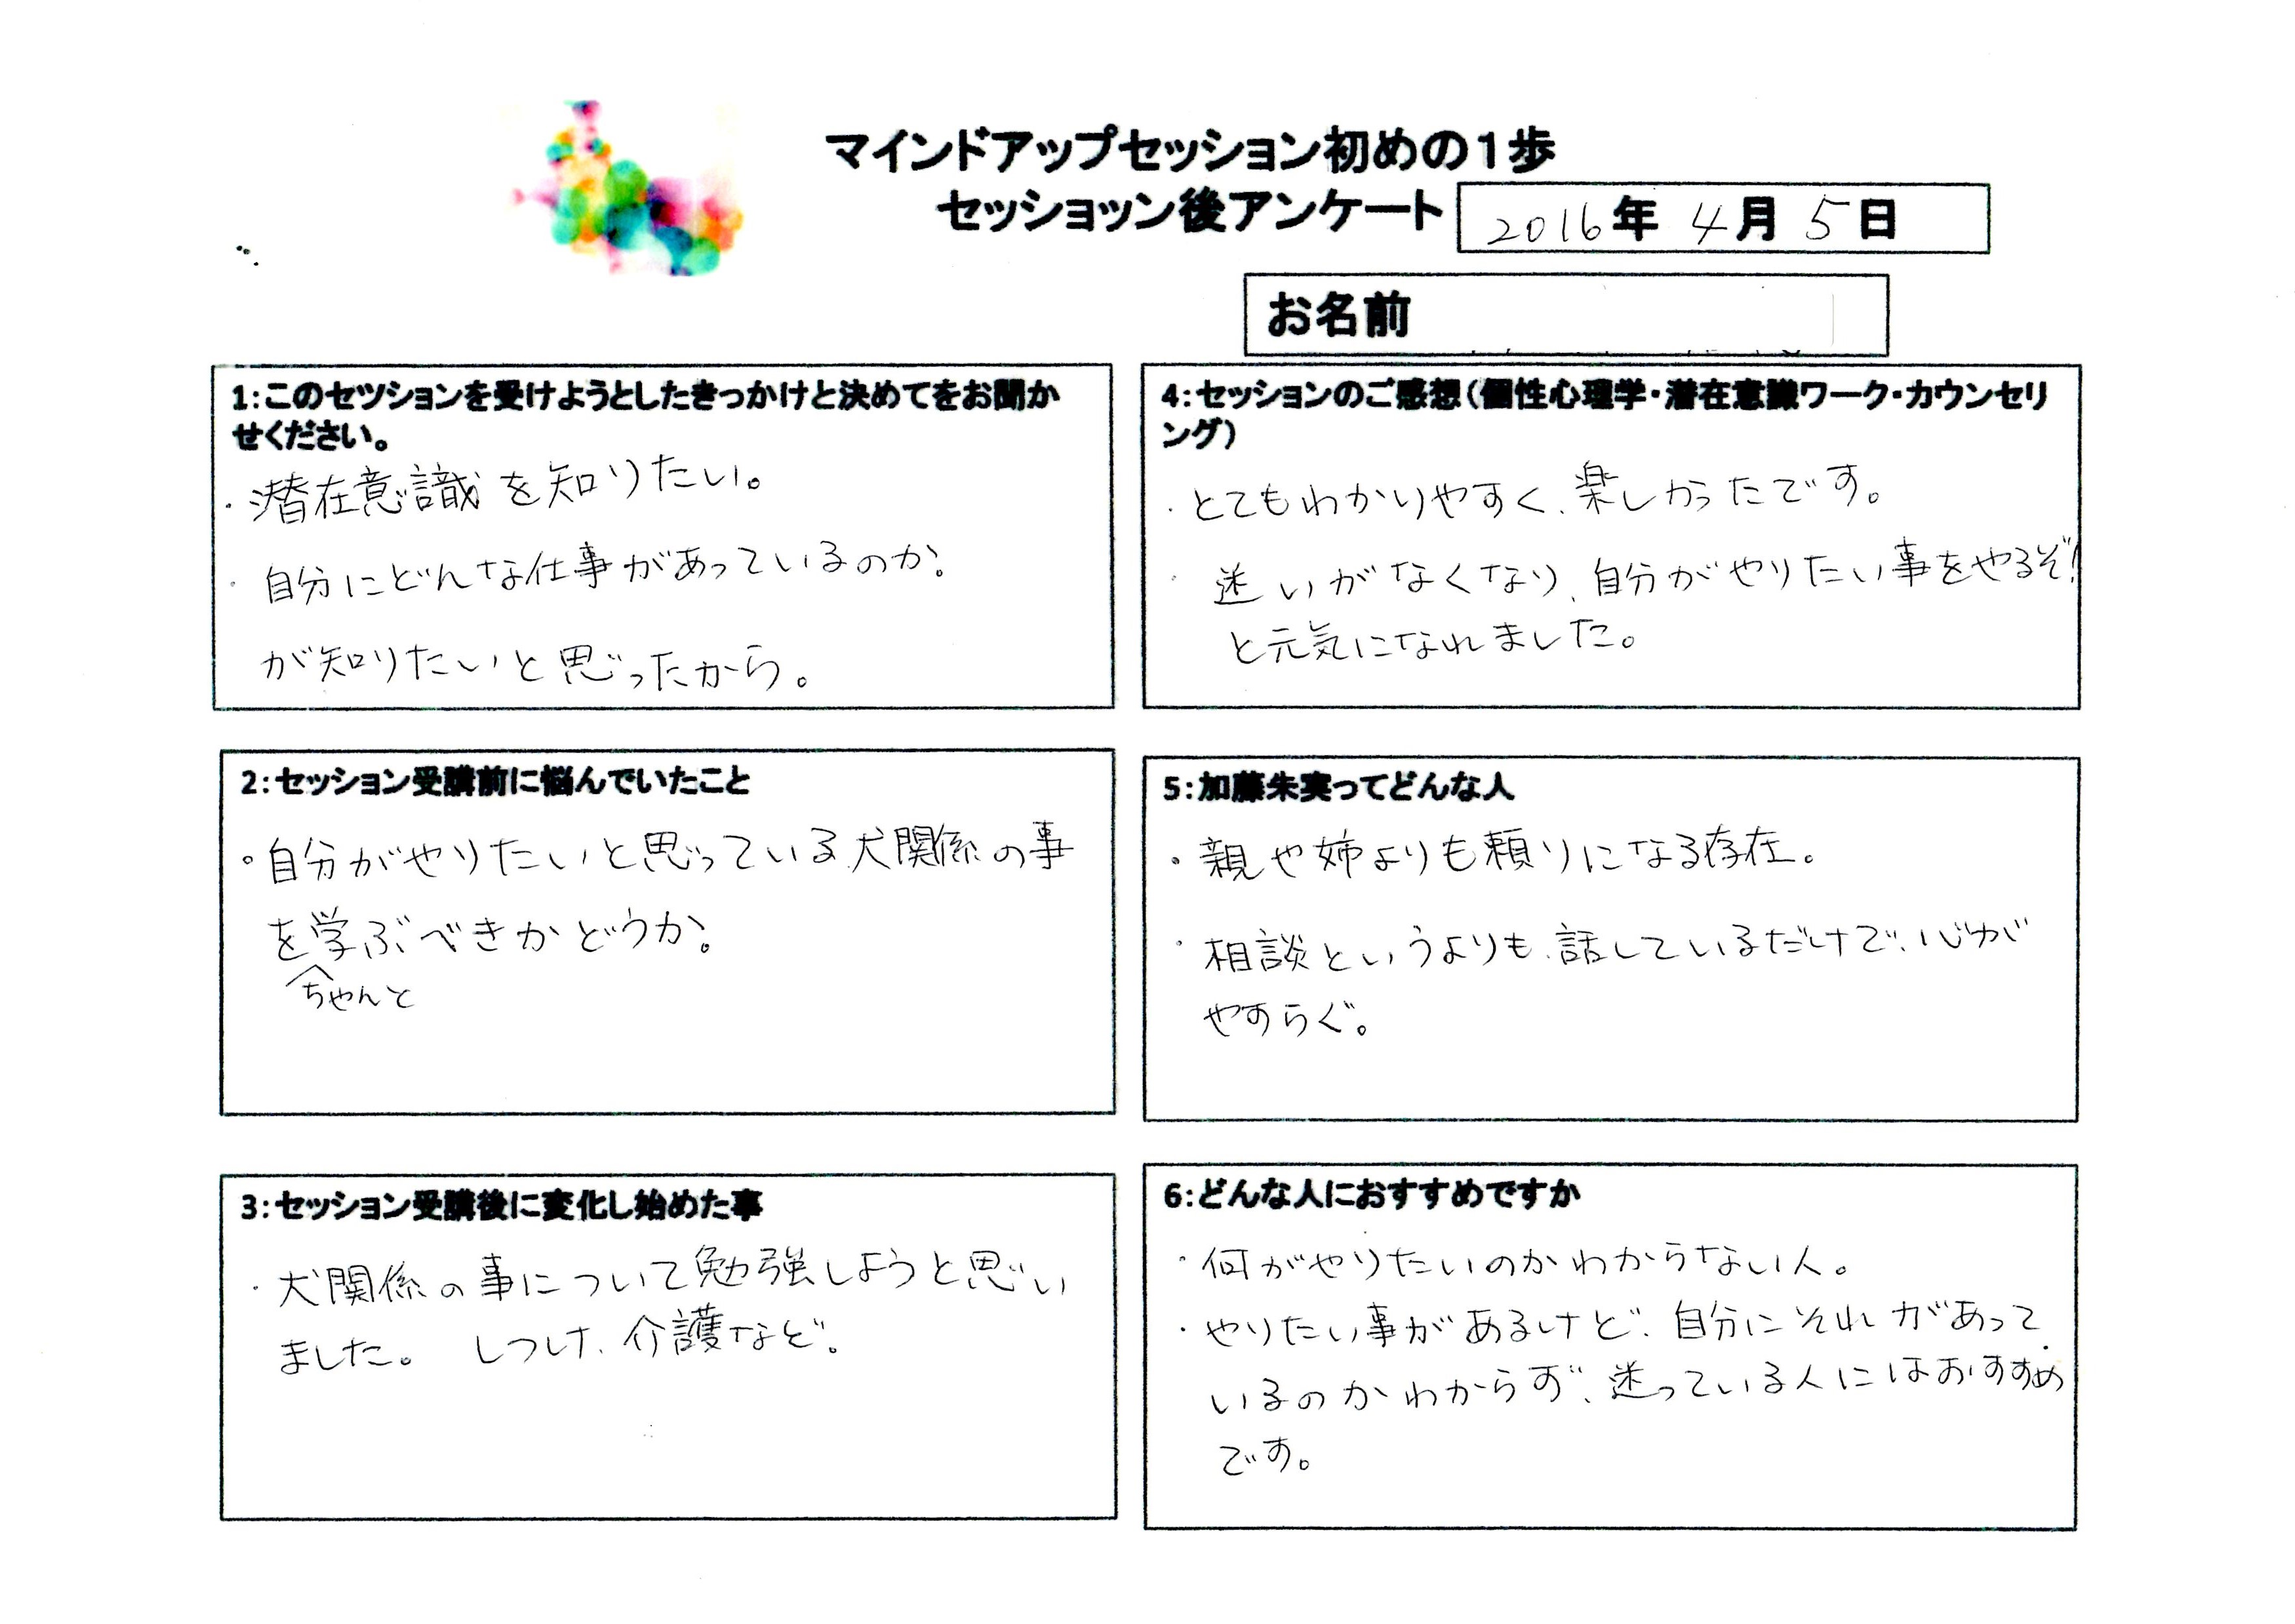 マインドアップセッション初めの1歩
セッショッン後アンケート
2016年 4月 5日
お名前
1:このセツションを受けようとしたきっかけと決めてをお聞か
せください。
・潜在意識を知りたい。
・自分にどんな仕事があっているのか?
が知りたいと思ったから。
2:セッション受講前に悩んでいたこと
・自分がやりたいと思っている犬関係の事
を学ぶべきかどうか?
ちゃんと
3:セッション受講後に変化し始めた事
・犬関係の事について勉強しようと思い
ました。 しつけ、介護など。
4:セッションのご感想(個性心理学・潜在意識ワーク・カウンセリ
ング)
・とてもわかりやすく、楽しかったです。
・迷いがなくなり、自分がやりたい事をやるぞ!
と元気になれました。
5:加藤朱実ってどんな人
・親や姉よりも頼りになる存在。
・相談というよりも、話しているだけで、心が
やすらぐ。
6:どんな人におすすめですか
・何がやりたいのかわからない人。
・やりたい事があるけど、自分にそれがあって
いるのかわからず、迷っている人にはおすすめ
です。